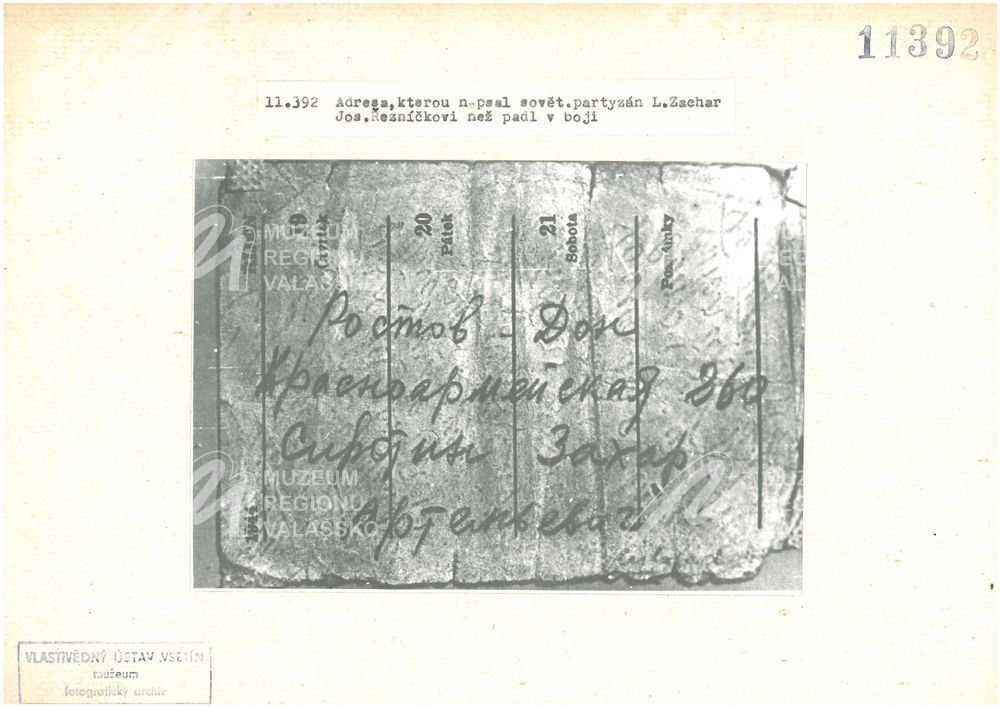 11392
11.392 Adresa,kterou n psal sovět.partyzán L.Zachar
Jos.Řezníčkovi než padl v boji
19
Čtvrtek
20
Pátek
21
Sobota
Poznámky
1944
Ростов - Дон
Красноармейская 260
Захар
Артемьевич
MUZEUM
REGIONU
VALAŠSKO
MUZEUM
REGIONU
VALAŠSKO
VLASTIVĚDNÝ ÚSTAV VSETÍN
muzeum
fotografický archiv